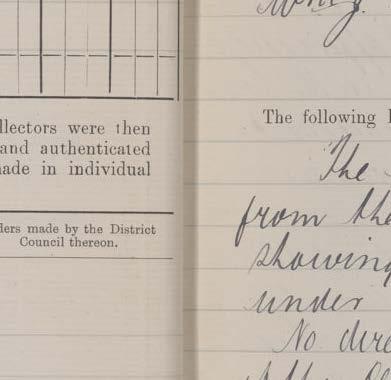 llectors were then
and authenticated
ade in individual
ders made by the District
Council thereon.
The following
The
from the
showing
under
No dire